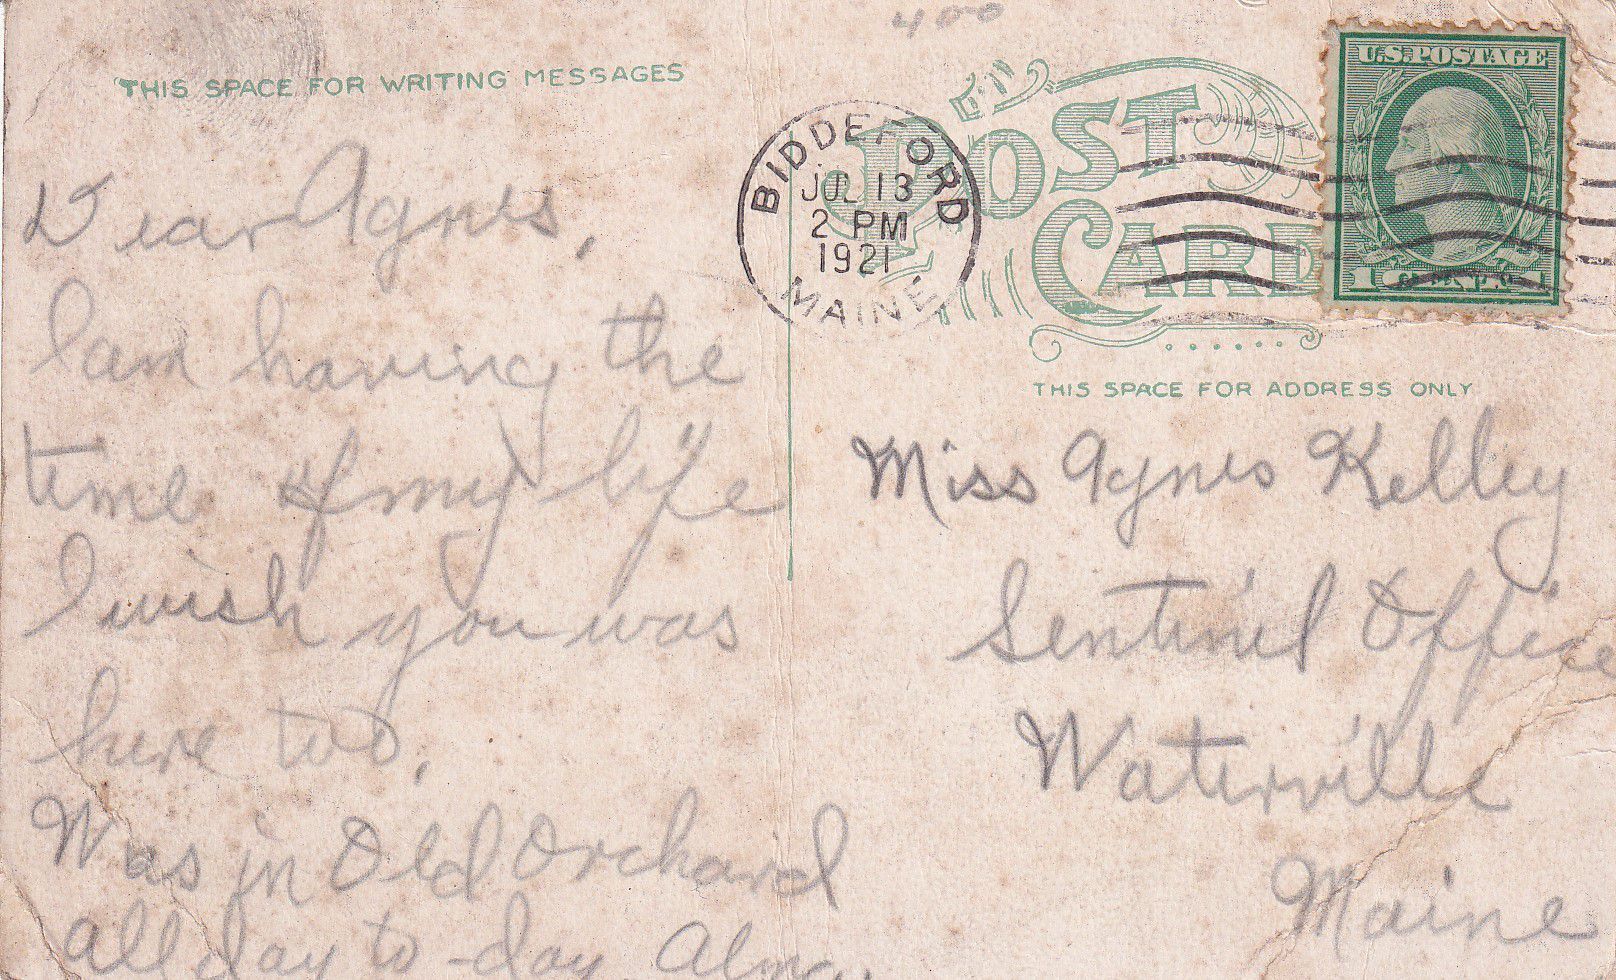 400
THIS SPACE FOR WRITING MESSAGES
POST
CARD
BIDDEFORD
JUL 13
2 PM
1921
MAINE
U.S. POSTAGE
1 CENT 1
THIS SPACE FOR ADDRESS ONLY
Dear Agnes,
I am having the
time of my life
I wish you was
here too.
Was in Old Orchard
all day to-day
Miss Agnes Kelley
Sentinel Office
Waterville
Maine